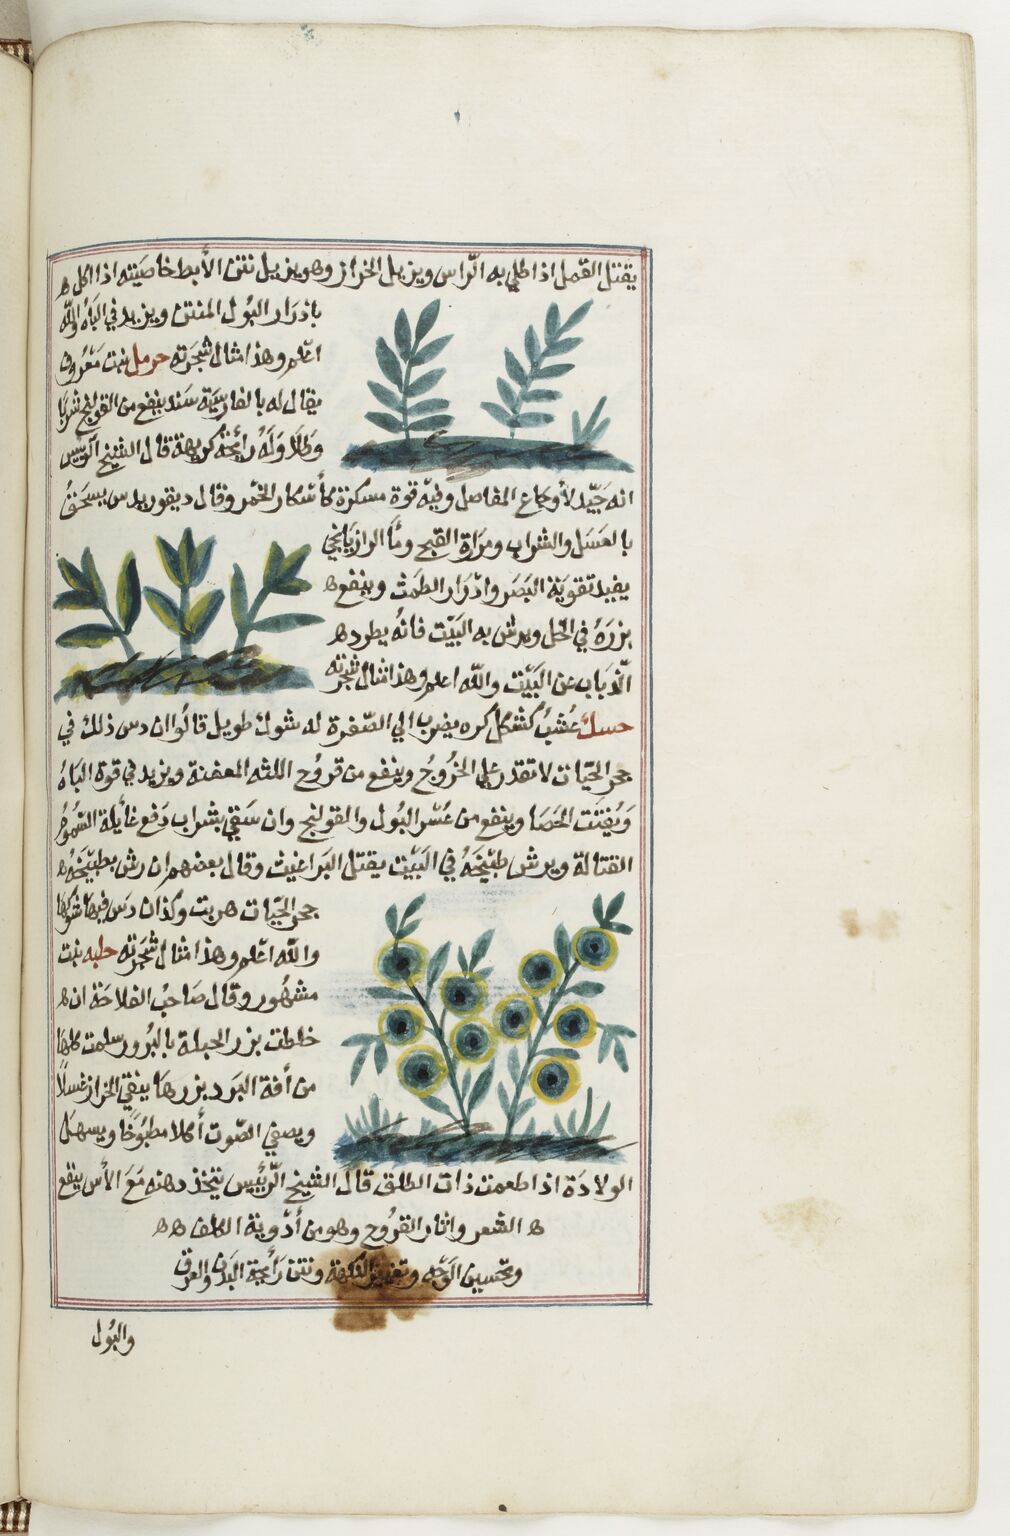 يقتل القمل اذا طلي به الرّاس ويزيل الخراز وهو يزيل نتن الأبط خاصيته اذا اكل ه
بإذرار البُول المنتن ويزيد في البَاهُ والله
اعْلم وهذا مثال شجَرَته حرمل نبت مَعْرُوف
يقال له بالفارسيَة سَند ينفع من القولنج شربًا
وَطلَا وَلَهُ رائحَة كريهة قال الشيخ الرّئيس
انه جَيّد لأوجاع المفاصل وفيه قوة مسكرة كأسكار الخمر وقال ديقوريدس يسحَقُ
بالعسَل والشراب ومرَارة القبج ومَا الرازيانخي
يفيد تقوية البَصَر وادْرَار الطمث وينفع ه
بزرَهُ في الخل ويرش به البَيْت فانهُ يطرده
الّذبَاب عن البَيْت والله اعلم وهذا مثال شجرته
حسك عُشبُ كشكل كره يضرب الي الصّفرة له شوك طويل قالُوا ان دس ذلك في
جحر الحيّات لا تقدر علي الخرُوجُ وينفع من قروح اللثه المعفنة ويزيد في قوة البَاهُ
وَيُفتت الحَصَا وينفع من عسْر البُول والقولنج وان سَقي بشراب دَفع غايلة السُّموُم
القتالة ويرش طَبْيخَهُ في البَيْت يقتل البَراغيث وقال بعضهم ان رش بطبيْخَهُ ه
جحر الحيَات هربت وكذان دسَ فيهَا شوكهَا
والله اعْلم وهذا مثال شجَرَته حلبه نبت
مشهُور وقال صَاحبُ الفلاحَة ان ه
خلطت بزر الحبلة بالبُرور سلمت كلهَا
من أفة البَرد بزرهَا ينقي الخراز غسلًا
ويصفي الصّوت أكلا مطبُوخًا ويسهَل
الولادَة اذا طعمت ذات الطلق قال الشيخ الرّئيس يتخذ دهنه مَعَ الأس ينفع
ه الشعر واثار القرُوح وهو من أدْوية الكلف ه ه
وتحسين الوَجْه وتغيير النكهة ونتن رَأئحة البَدَن والعرق
والبُول